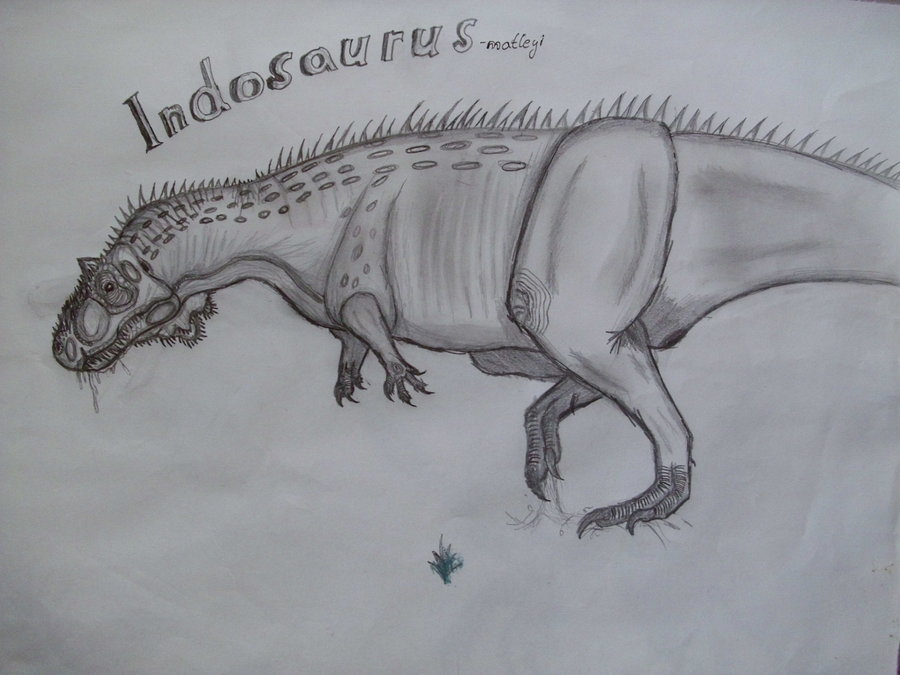 Indosaurus -matleyi